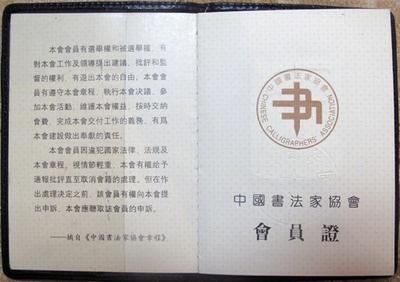 本會會員有選舉權和被選舉權，有
對本會工作及領導提出建議、批評和監
督的權利，有退出本會的自由。本會會
員有遵守本會章程、執行本會決議、參
加本會活動、維護本會權益、按時交納
會費、完成本會交付工作的義務，有爲
本會建設做出奉獻的責任。
本會會員因違犯國家法律、法規及
本會章程，視情節輕重，本會有權給予
通報批評直至取消會籍的處理。但在作
出處理决定之前，該會員有權向本會提
出申訴，本會應聽取該會員的申訴。
——摘自《中國書法家協會章程》
中國書法家協會
CHINESE CALLIGRAPHERS' ASSOCIATION
中國書法家協會
會員證